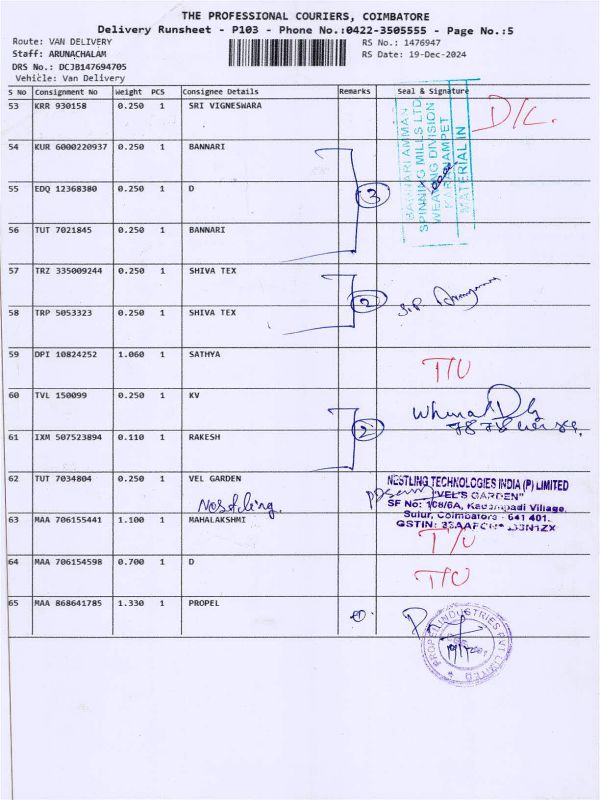 THE PROFESSIONAL COURIERS, COIMBATORE
Delivery Runsheet - P103 - Phone No.:0422-3505555 - Page No.:5
Route: VAN DELIVERY
RS No.: 1476947
Staff: ARUNACHALAM
RS Date: 19-Dec-2024
DRS No.: DCJB147694705
Vehicle: Van Delivery
S No Consignment No Weight PCS Consignee Details Remarks Seal & Signature
53 KRR 930158 0.250 1 SRI VIGNESWARA D/L.
54 KUR 6000220937 0.250 1 BANNARI
55 EDQ 12368380 0.250 1 D
3
56 TUT 7021845 0.250 1 BANNARI
BANNARI AMMAN
SPINNING MILLS LTD
WEAVING DIVISION
KARANAMPET
MATERIAL IN
57 TRZ 335009244 0.250 1 SHIVA TEX
2
58 TRP 5053323 0.250 1 SHIVA TEX
59 DPI 10824252 1.060 1 SATHYA T/U
60 TVL 150099 0.250 1 KV
2
61 IXM 507523894 0.110 1 RAKESH
62 TUT 7034804 0.250 1 VEL GARDEN
Nestling.
NESTLING TECHNOLOGIES INDIA (P) LIMITED
"VEL'S GARDEN"
SF No: 108/6A, Kadampadi Village,
Sulur, Coimbatore - 641 401.
63 MAA 706155441 1.100 1 MAHALAKSHMI T/U
64 MAA 706154598 0.700 1 D T/U
65 MAA 868641785 1.330 1 PROPEL
PROPEL INDUSTRIES PVT LIMITED